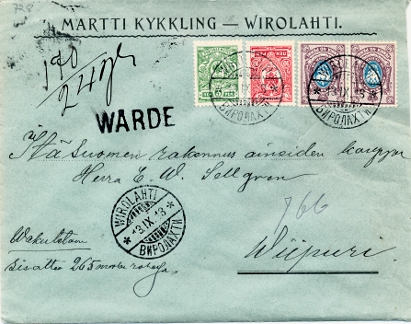 MARTTI KYKKLING — WIROLAHTI.
190
24
WARDE
Itä Suomen rakennus aineiden kauppa
Herra E. W. Sellgren
WIROLAHTI
13.IX.13
ВИРОЛАХТИ
766
Wiipuri
Wakuutettu
Sisältää 265 markan
ВИРОЛАХТИ